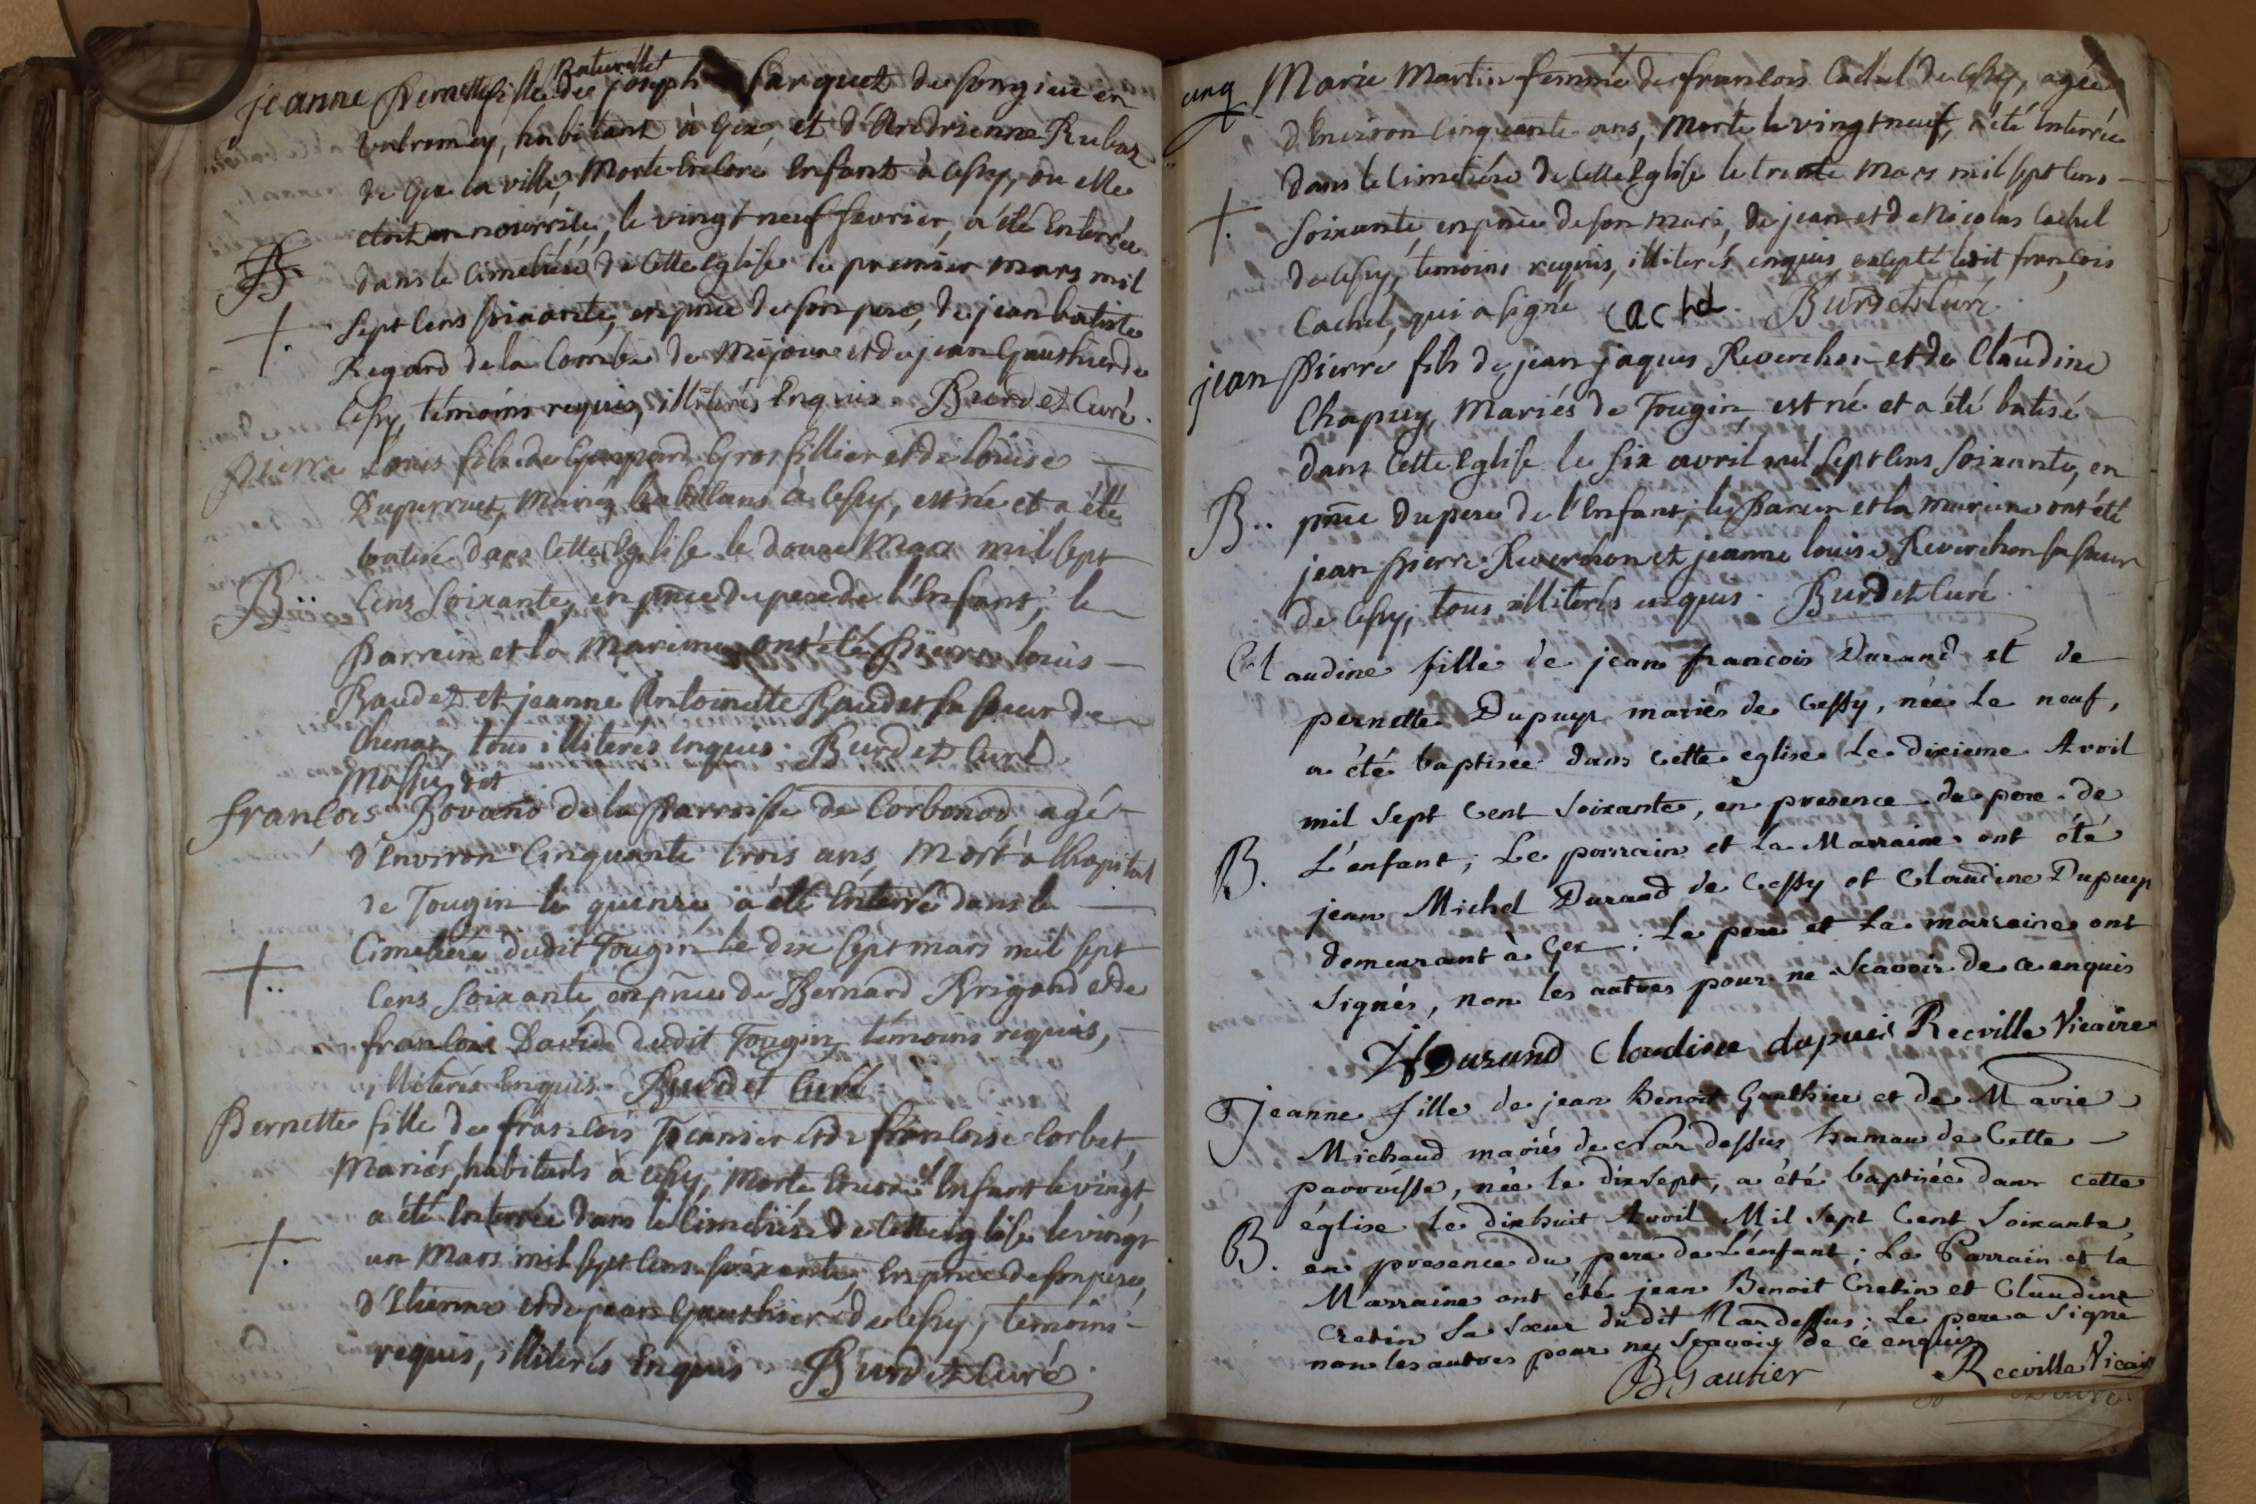 Naturellet
jeanne Pernette fille de joseph farquet de songieu en
valromey, habitant à Gex, et d'Andrienne Rubaz
de Gex la ville, Morte Encore Enfant à Cessy, ou elle
etoit en nourrice, le vingt neuf fevrier, a été Enterrée
B
dans le cimetiére de cette Eglise le premier mars mil
+ sept Cens soixante, en pñce de son pere, de jean batiste
Regard de la Combe de Mijoux et de jean Gauthier de
Cessy, témoins requis, illiterés Enquis. Burdet Curé.
Pierre Louis fils de Gaspard Grosfillier et de Louise
Duperruet, Mariés habitans à Cessy, est né et a été
batisé dans cette Eglise le douze Mars mil sept
B.. Cens soixante, en pñce du pere de l'Enfant; le
Parrein et la Mareine ont été Pierre louis
Baudet et jeanne Antoinette Baudet sa sœur de
Chenaz, tous illiterés enquis. Burdet Curé
Massu dit
francois Bovano de la Parroisse de Corbonod, agé
d'Environ Cinquante trois ans, Mort à l'hopital
de Tougin le quinze, a été Enterré dans le
+.. Cimetiére dudit Tougin le dix sept mars mil sept
Cens soixante, en pñce de Bernard Brigand et de
francois David dudit Tougin, témoins requis,
illiterés Enquis. Burdet Curé.
Pernette fille de francois et de francoise Corbet,
Mariés, habitants à Cessy, Morte Encore Enfant le vingt,
a été Enterrée dans le Cimetiére de cette Eglise le vingt
+. un Mars mil sept Cens soixante, En pñce de son pere,
d'Etienne et de jean Gauthier de Cessy, temoins
requis, illiterés Enquis. Burdet Curé.
cinq Marie Martin femme de francois Cachet de Cessy, agée
d'Environ Cinquante ans, Morte le vingt neuf, a été Enterrée
dans le Cimetiére de cette Eglise le trente Mars mil sept Cens
+. soixante, en pñce de son mari, de jean et de Nicolas Cachet
de Cessy, temoins requis, illiterés enquis, excepté ledit francois
Cachet, qui a signé Cachd. Burdet Curé.
jean Pierre fils de jean jaques Reverchon et de Claudine
Chapuy, Mariés de Tougin, est né et a été batisé
dans cette Eglise le six avril mil sept Cens soixante, en
B.. pñce du pere de l'Enfant; les Parein et la Mareine ont été
jean Pierre Reverchon et jeanne louise Reverchon sa sœur
de Cessy, tous illiterés enquis. Burdet Curé.
Claudine fille de jean francois Durand et de
pernette Dupuy mariés de Cessy, née le neuf,
a été baptisée dans cette eglise le dixieme Avril
mil Sept Cent Soixante, en presence du pere de
B. L'enfant; Le parrain et La Marraine ont été
jean Michel Durand de Cessy et Claudine Dupuy
demeurant à Gex; Le pere et La marraine ont
Signés, non les autres pour ne Scavoir de ce enquis
JfDurand Claudine dupuis Recville Vicaire
Jeanne fille de jean Benoit Gauthier et de Marie
Michaud mariés de Nar dessus hameau de Cette
parroisse, née le dixsept, a été baptisée dans cette
église le dixhuit Avril Mil Sept Cent Soixante,
B. en presence du pere de L'enfant; Le Parrain et la
Marraine ont été jean Benoit Cretin et Claudine
Cretin Sa Sœur dudit Nardessus; Le pere a Signé
non les autres pour ny Scavoir de ce enquis
BGautier Recville Vicaire